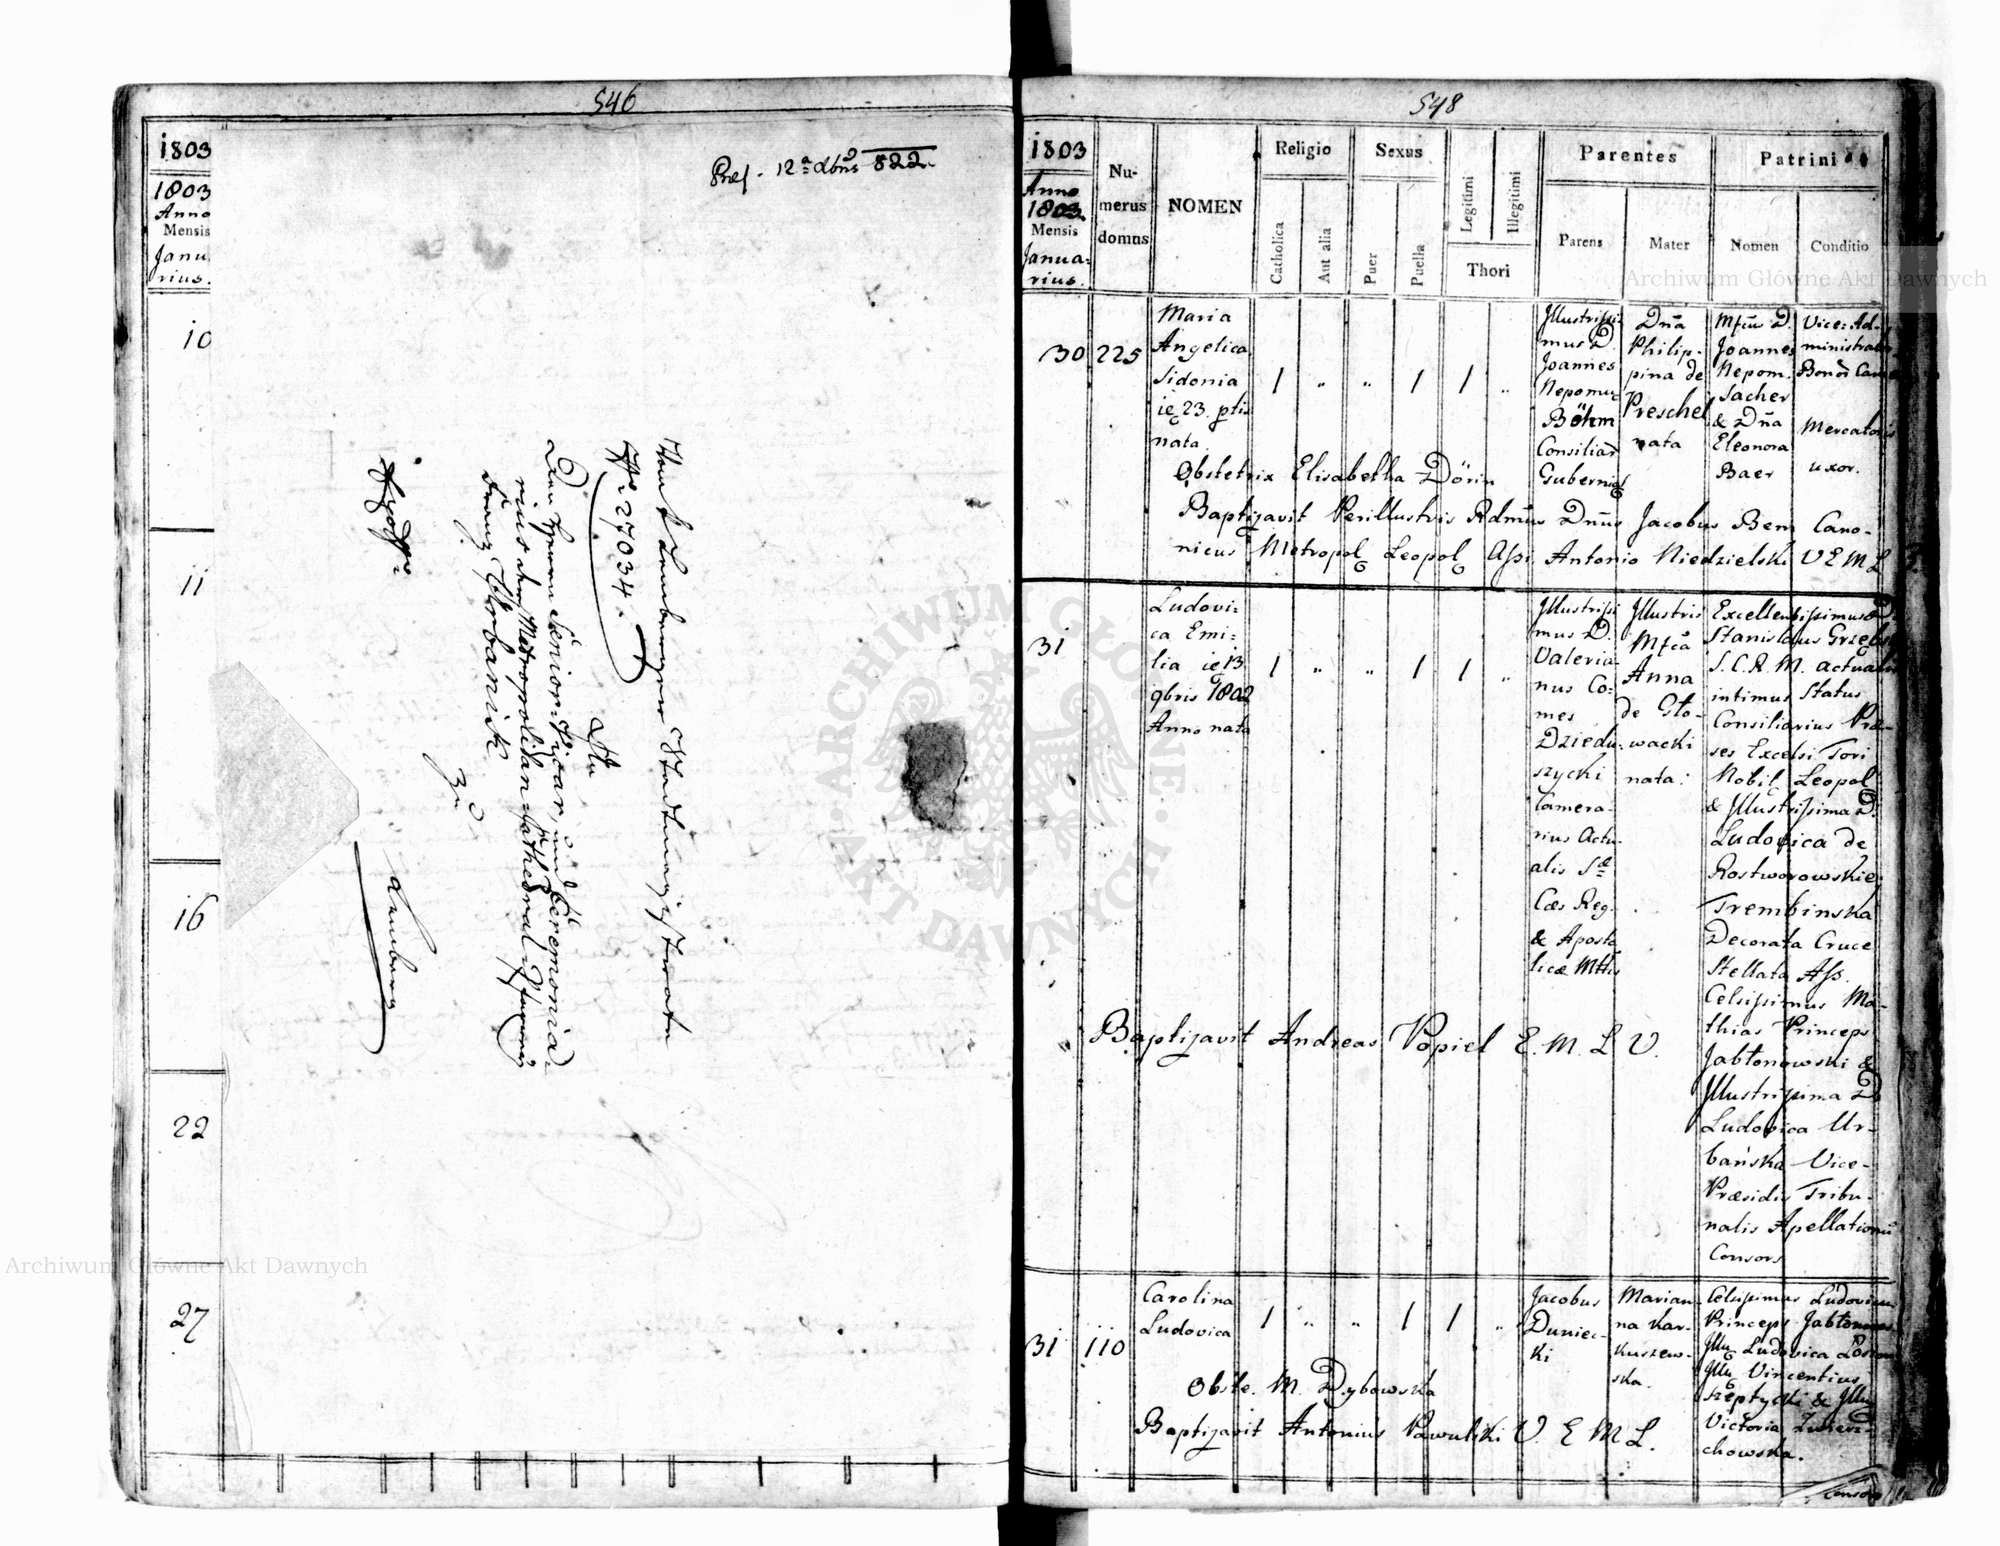 546
1803
1803
Anno
Mensis
Janu
rius.
10
11
16
22
27
Præs. 12ª Xbris 822.
Vom k Lemberger Stadtmagistrate
No 27034.
An
Den Herrn Senior-Vicar, und Ceremonia
rius der Metropolitan Cathedral-Pfarre
Franz Urbanik
zu
Lemberg
548
1803
Anno
1803.
Mensis
Janua-
rius.
Nu-
merus
domus
NOMEN
Religio
Catholica
Aut alia
Sexus
Puer
Puella
Legitimi
Illegitimi
Thori
Parentes
Parens
Mater
Patrini
Nomen
Conditio
30
225
Maria
Angelica
Sidonia
ie 23. ptis
nata.
1 " " 1 1 "
Illustrissi-
mus D.
Joannes
Nepomuc
Böhm
Consiliar
Gubernial
Dña
Philip-
pina de
Preschel
nata
Mfcus D.
Joannes
Nepom.
Sacher
& Dña
Eleonora
Baer
Vice: Ad-
ministrator
Bonor Cam
Mercatoris
uxor.
Obstetrix Elisabetha Dörin
Baptizavit Perillustris Rdmus Dnus Jacobus Bem Cano-
nicus Metropol Leopol Assi. Antonio Niedzielski V E M L
31
Ludovi-
ca Emi-
lia ie 13
9bris 1802
Anno nata
1 " " 1 1 "
Illustrissi
mus D.
Valeria-
nus Co-
mes
Dziedu-
szycki
Camera-
rius Actu-
alis Sæ
Cæs Reg.
& Aposto
licæ Mttis
Illustris
Mfca
Anna
de Gło-
wacki
nata:
Excellentissimus D.
Stanislaus Grzębski
S. C. R. M. actualis
intimus Status
Consiliarius Præ-
ses Excelsi Fori
Nobil Leopol
& Illustrissima D.
Ludovica de
Rostworowskie
Trembinska
Decorata Cruce
Stellata Ass.
Celsissimus Ma-
thias Princeps
Jabłonowski &
Illustrissima D
Ludovica Ur-
bańska Vice-
Præsidis Tribu-
nalis Apellationū
Consors
Baptizavit Andreas Popiel E. M. L V.
31
110
Carolina
Ludovica
1 " " 1 1 "
Jacobus
Duniec-
ki
Marian-
na Kar-
kuszew-
ska.
Celsissimus Ludovicus
Princeps Jabłonows
Illu Ludovica
Illu Vincentius
Szeptycki & Illu
Victoria Zwierz-
chowska.
Obste. M. Dybowska
Baptizavit Antonius Pawulski V. E M L.
Consors
Archiwum Główne Akt Dawnych
Archiwum Główne Akt Dawnych
ARCHIWUM GŁÓWNE AKT DAWNYCH